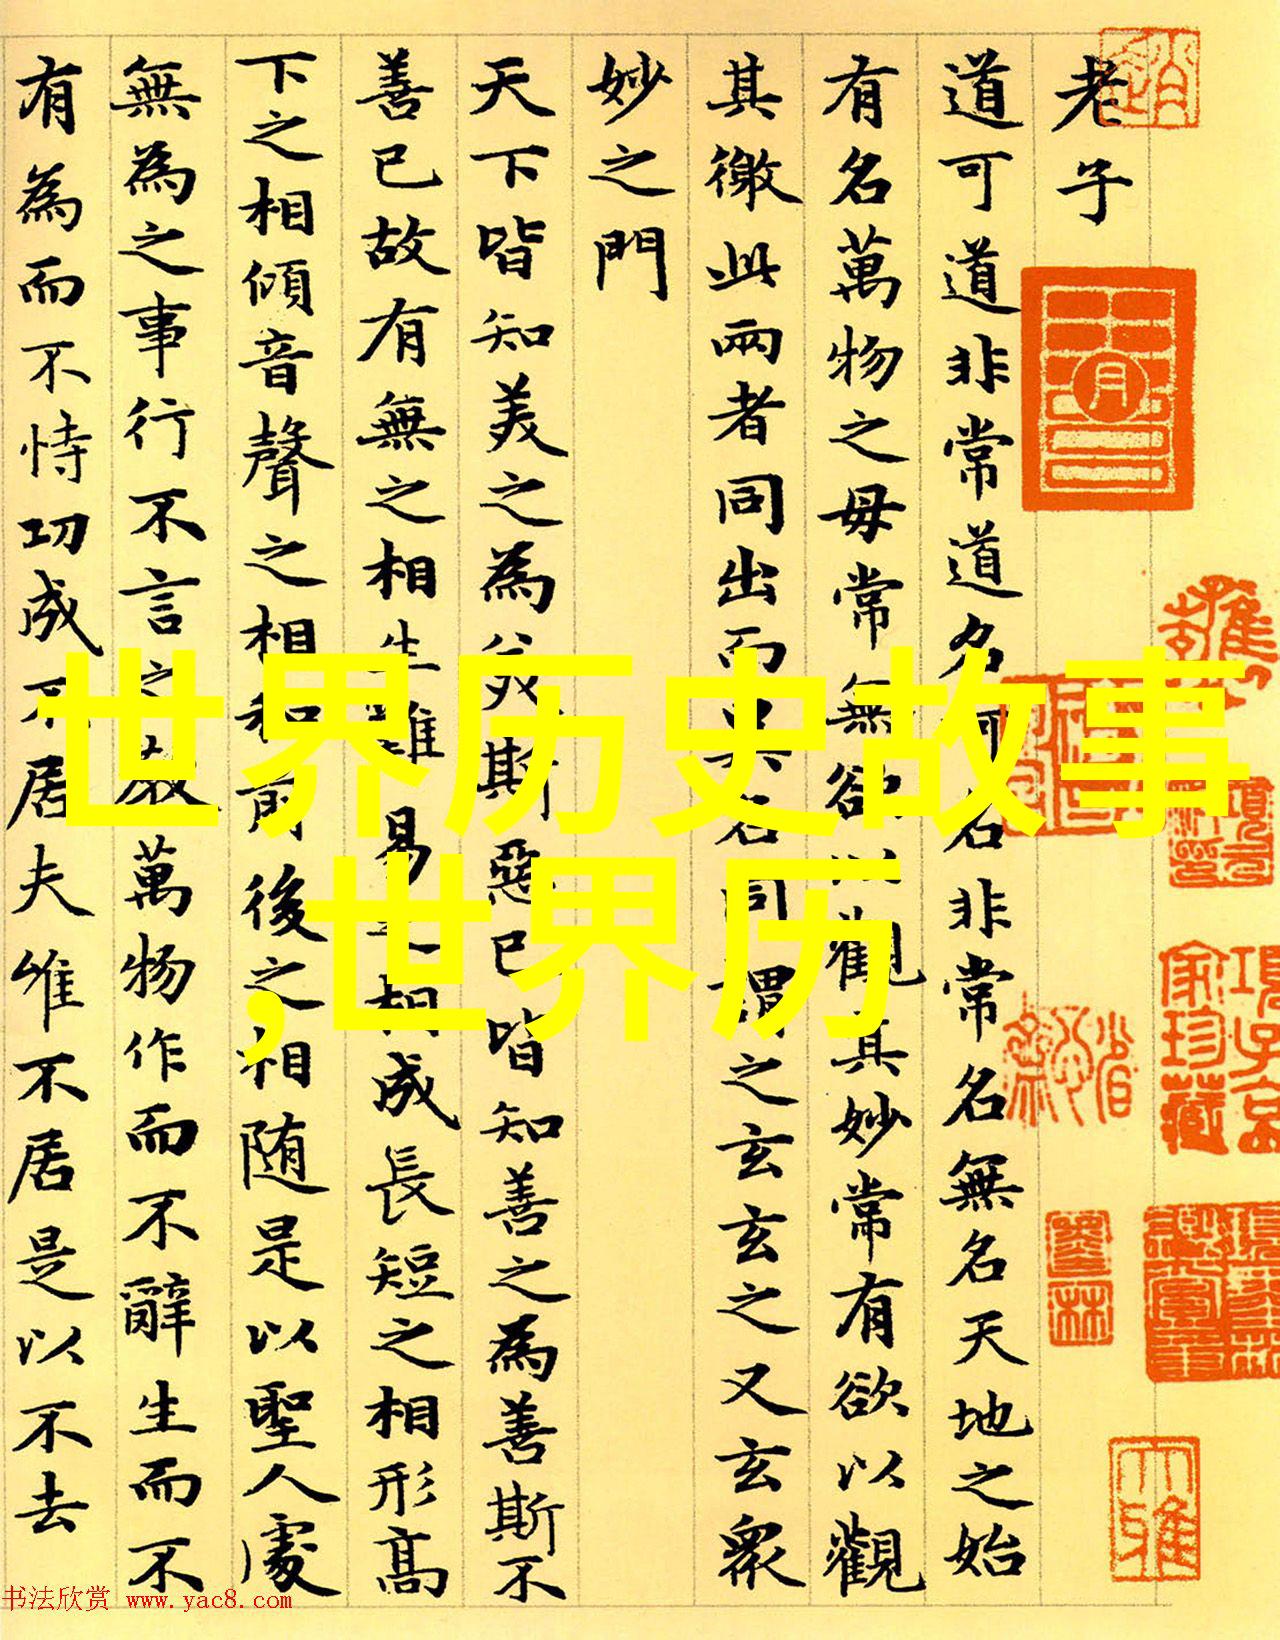 老子
道可道非常道名可名非常名無名天地之始
有名萬物之母常無欲以觀其妙常有欲以觀
其徼此兩者同出而異名同謂之玄玄之又玄衆
妙之門
天下皆知美之為美斯惡已皆知善之為善斯不
善已故有無之相生難易之相成長短之相形高
下之相傾音聲之相和前後之相随是以聖人處
無為之事行不言之教萬物作而不辭生而不
有為而不恃功成不居夫唯不居是以不去
世界历史故事
,世界历
项子京
家珍藏
大雅
书法欣赏 www.yac8.com